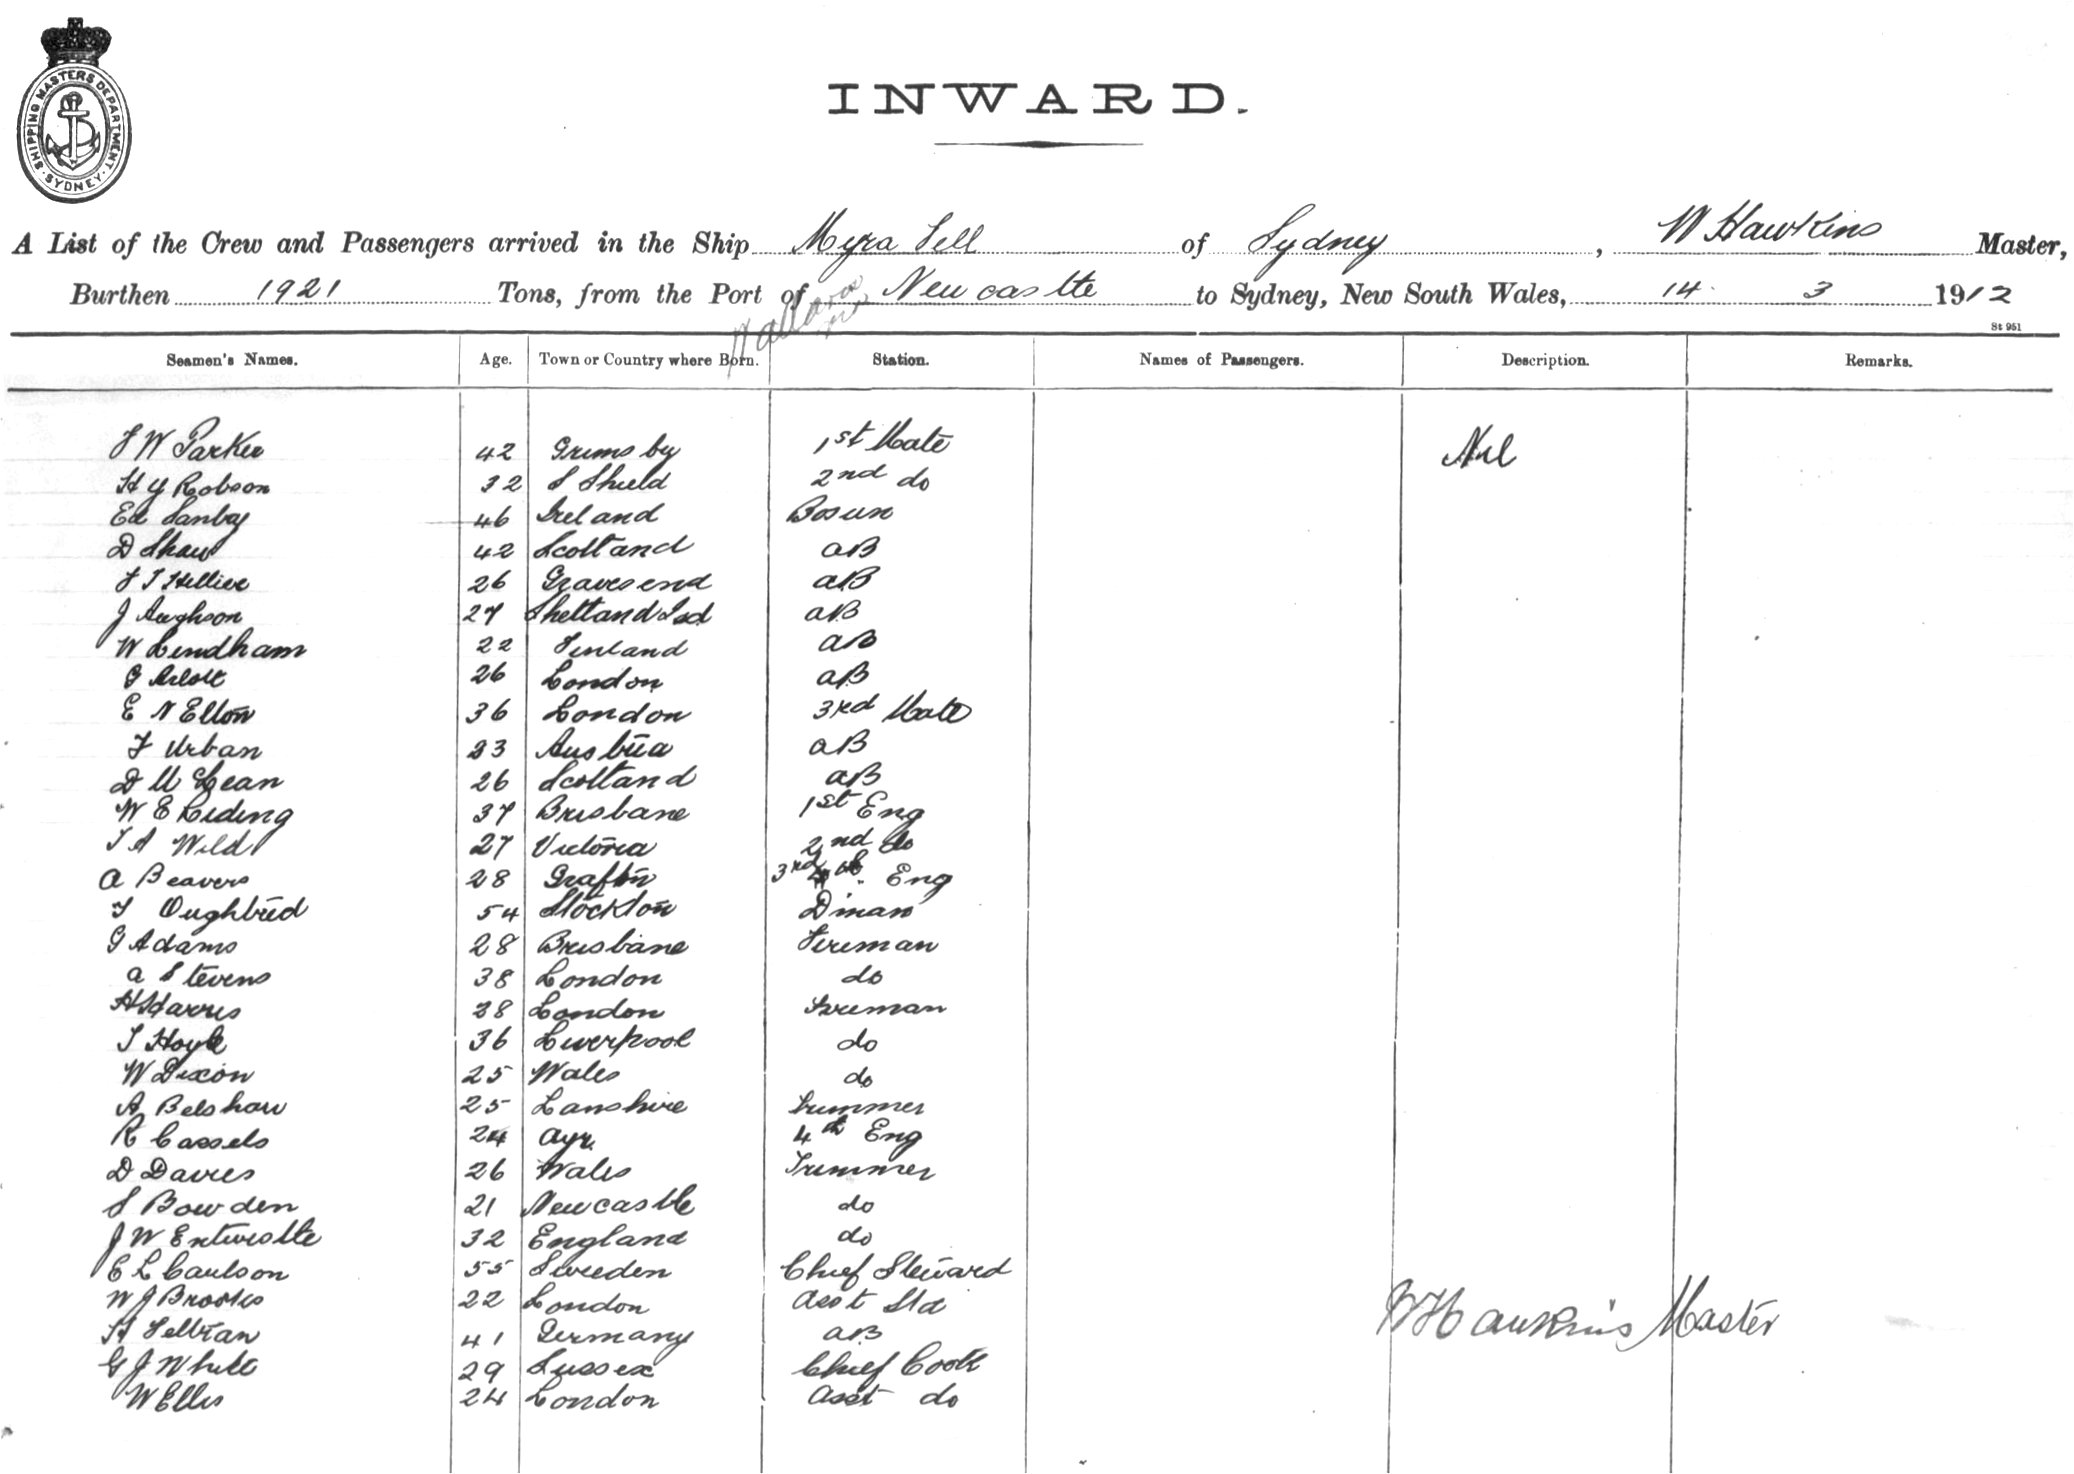 SHIPPING MASTERS DEPARTMENT SYDNEY
INWARD.
A List of the Crew and Passengers arrived in the Ship Myra Fell of Sydney, W Hawkins Master,
Burthen 1921 Tons, from the Port of Newcastle to Sydney, New South Wales, 14 3 1912
St 951
Seamen's Names. Age. Town or Country where Born. Station. Names of Passengers. Description. Remarks.
F W Parker 42 Grimsby 1st Mate Nil
H Y Robson 32 S Shield 2nd do
Ed 46 Ireland Bosun
D Shaw 42 Scotland AB
F T Hellier 26 Gravesend AB
J 27 Shetland Isd AB
W Lindham 22 Finland AB
G 26 London AB
E N Elton 36 London 3rd Mate
F Urban 23 Austria AB
D McLean 26 Scotland AB
W E 37 Brisbane 1st Eng
T A Wild 27 Victoria 2nd do
A Beavers 28 Grafton 3rd Eng
T Oughtred 54 Stockton Dman
G Adams 28 Brisbane Fireman
A Stevens 38 London do
H Harris 28 London Fireman
T Hoyle 36 Liverpool do
W Dixon 25 Wales do
A Belshaw 25 Lanshire Trimmer
R Cassels 24 Ayr. 4th Eng
D Davies 26 Wales Trimmer
S Bowden 21 Newcastle do
J W Entwistle 32 England do
E L Caulson 55 Sweeden Chief Steward
W J Brooks 22 London Asst Std
H 41 Germany AB
W Hawkins Master
G J White 29 Sussex Chief Cook
W Ellis 24 London Asst do